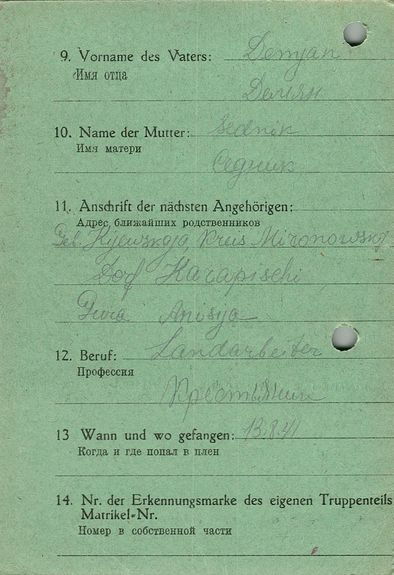 9. Vorname des Vaters: Demjan
Имя отца
Демян
10. Name der Mutter: Sednik
Имя матери
Седник
11. Anschrift der nächsten Angehörigen:
Адрес ближайших родственников
Geb. Kyewskaja, Kreis Mironowskj
Dorf Karapischi
Anisja
12. Beruf: Landarbeiter
Профессия
13 Wann und wo gefangen: 13.8.41
Когда и где попал в плен
14. Nr. der Erkennungsmarke des eigenen Truppenteils
Matrikel-Nr.
Номер в собственной части